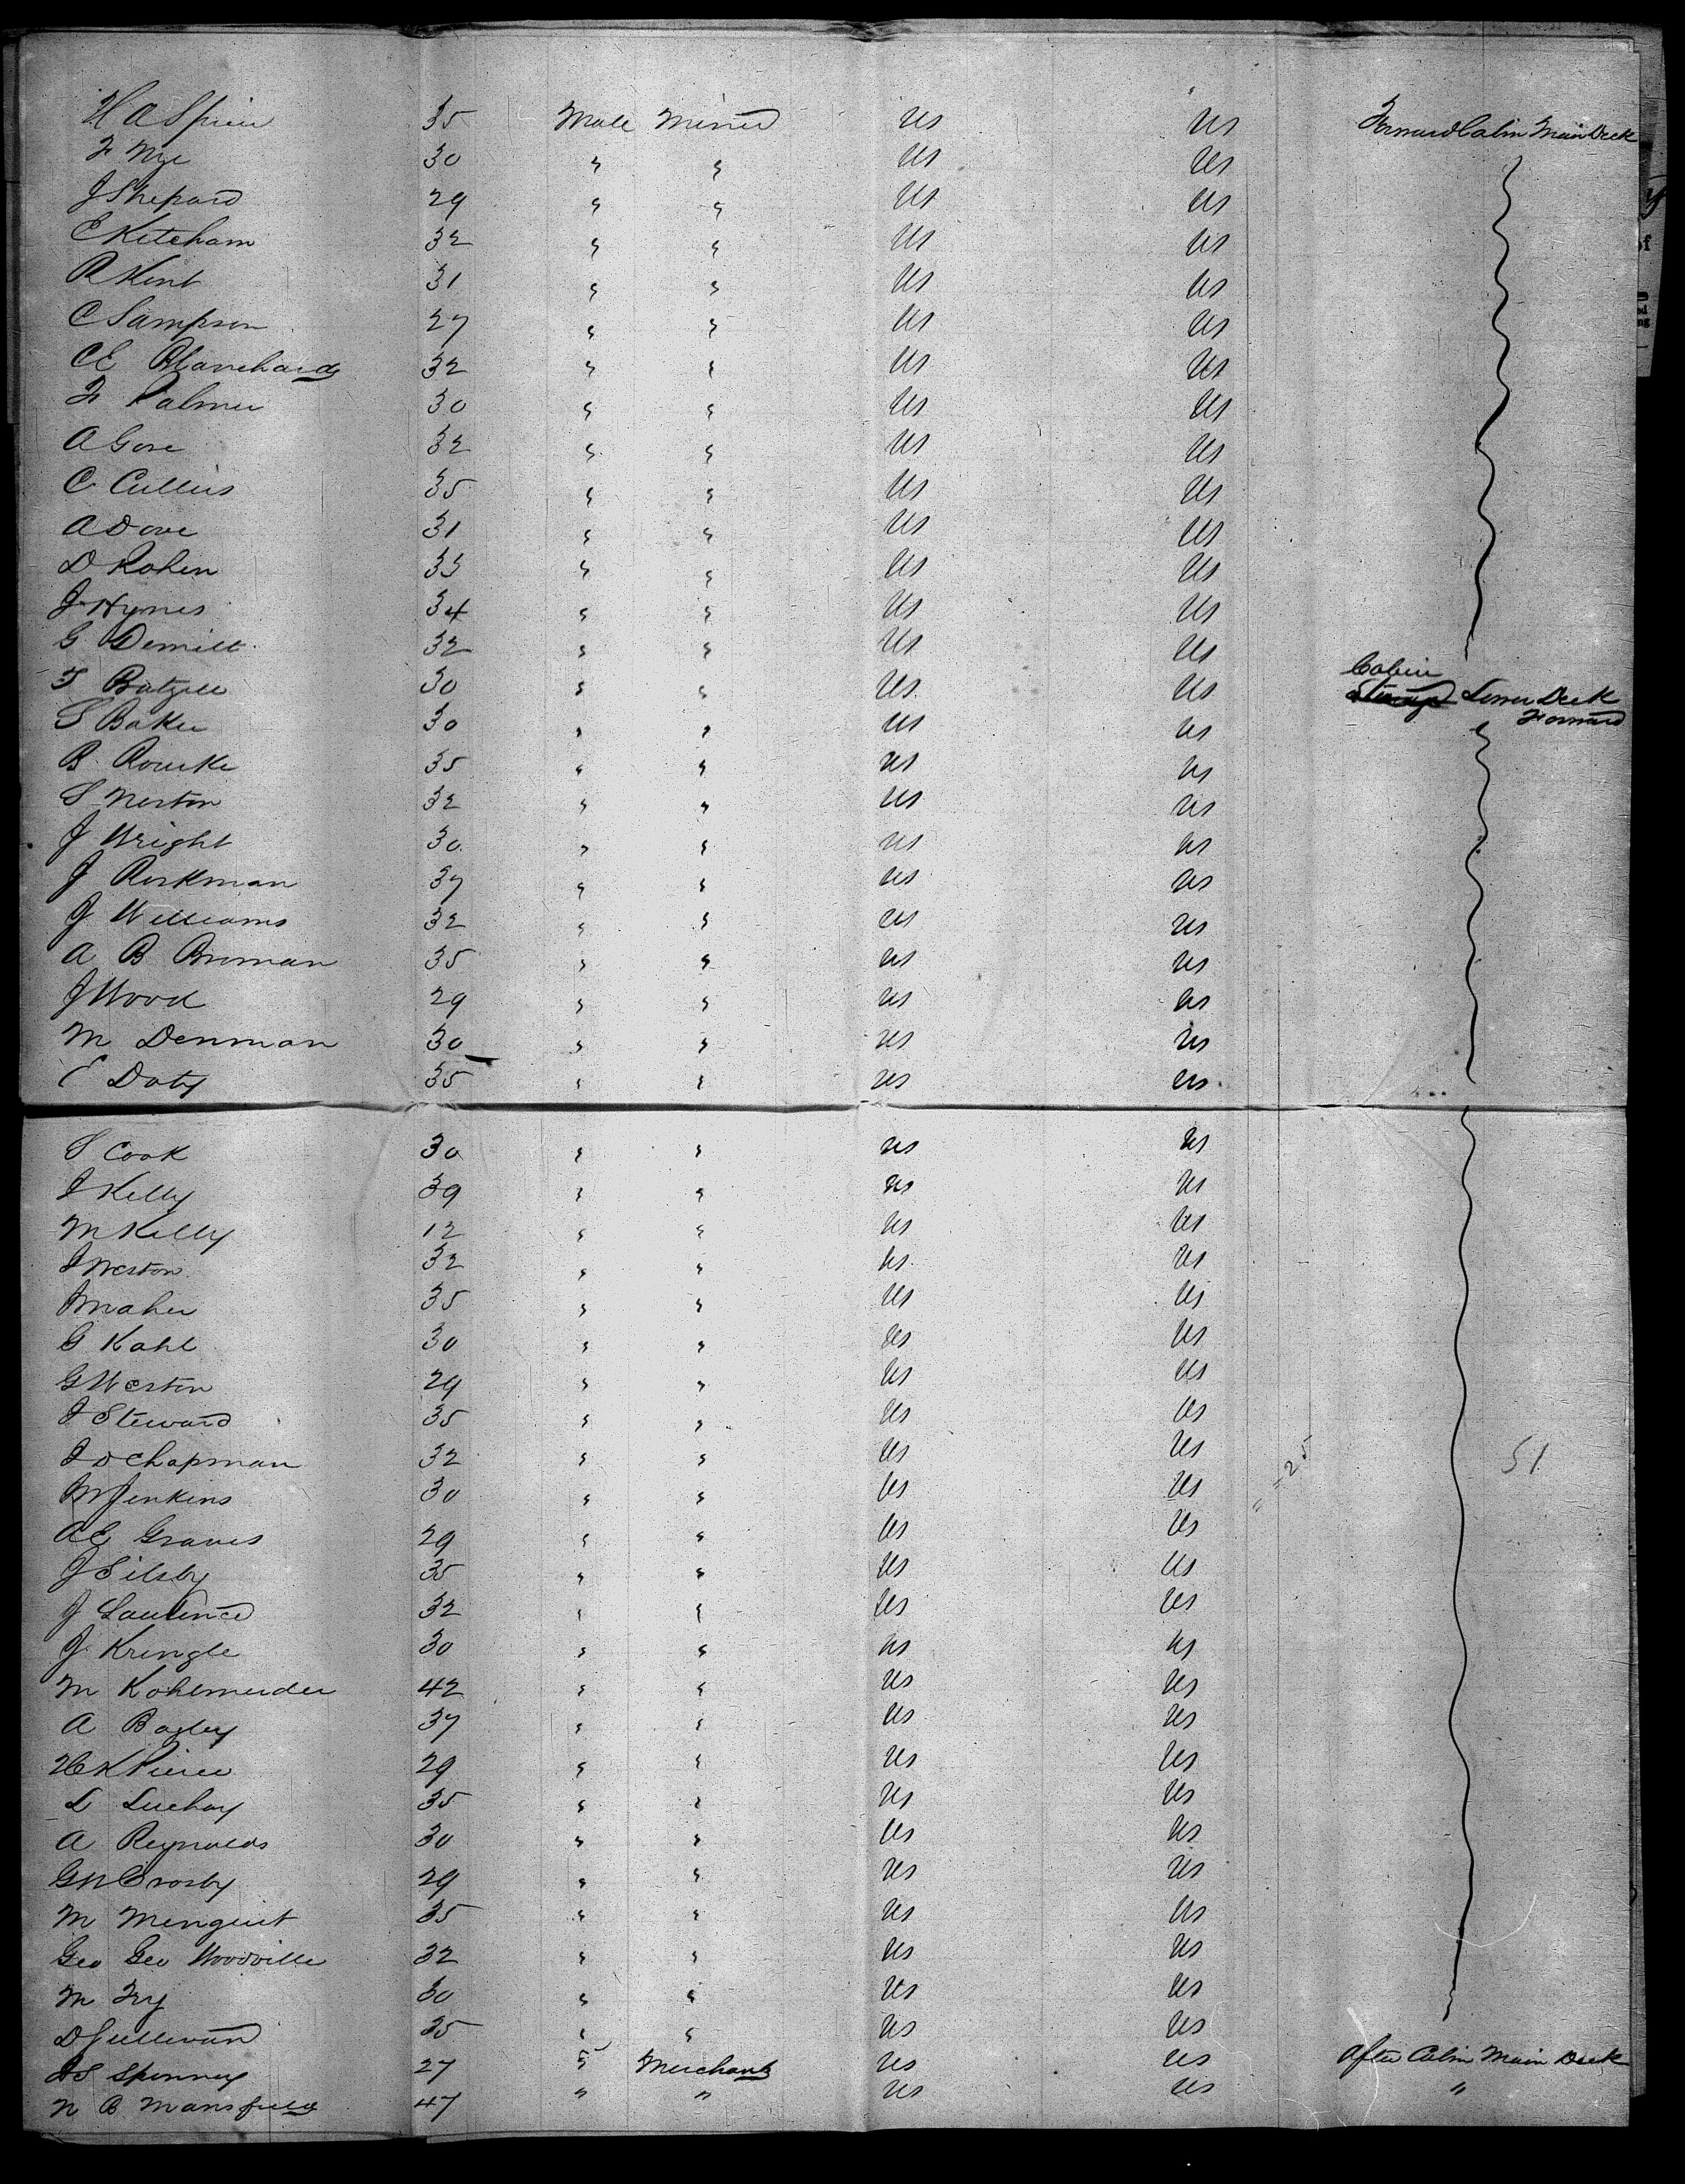 H A Spicer 35 Male Miner US US Forward Cabin Main Deck
F Nye 30 " " US US
J Shepard 29 " " US US
E Ketcham 32 " " US US
R Kent 31 " " US US
C Sampson 27 " " US US
C E Blanchard 32 " " US US
F Palmer 30 " " US US
A Gove 32 " " US US
C Cullis 35 " " US US
A Dove 31 " " US US
D Kohen 33 " " US US
J Hynes 34 " " US US
G Demilt 32 " " US US
Cabin
T Batzell 30 " " US US Steerage Lower Deck
Forward
S Baker 30 " " US US
B Rourke 35 " " US US
S Norton 32 " " US US
J Wright 30 " " US US
J Rorkman 37 " " US US
J Williams 32 " " US US
A B Broman 35 " " US US
J Wood 29 " " US US
M Denman 30 " " US US
E Doty 35 " " US US
S Cook 30 " " US US
J Kelly 39 " " US US
M Kelly 12 " " US US
J Weston 32 " " US US
J Maher 35 " " US US
G Kahl 30 " " US US
G Weston 29 " " US US
J Steward 35 " " US US
J D Chapman 32 " " US US 51
W Jenkins 30 " " US US " " 25
A E Graves 29 " " US US
J Silsby 35 " " US US
J Laurence 32 " " US US
J Kringle 30 " " US US
M Kohlmeider 42 " " US US
A Bagley 37 " " US US
H K Pierce 29 " " US US
L Luchay 35 " " US US
A Reynolds 30 " " US US
G W Crosby 29 " " US US
M Menguit 35 " " US US
Geo Geo Woodville 32 " " US US
M Fry 30 " " US US
D Sullivan 35 " " US US
J S Spinney 27 " Merchant US US After Cabin Main Deck
N B Mansfield 47 " " US US "